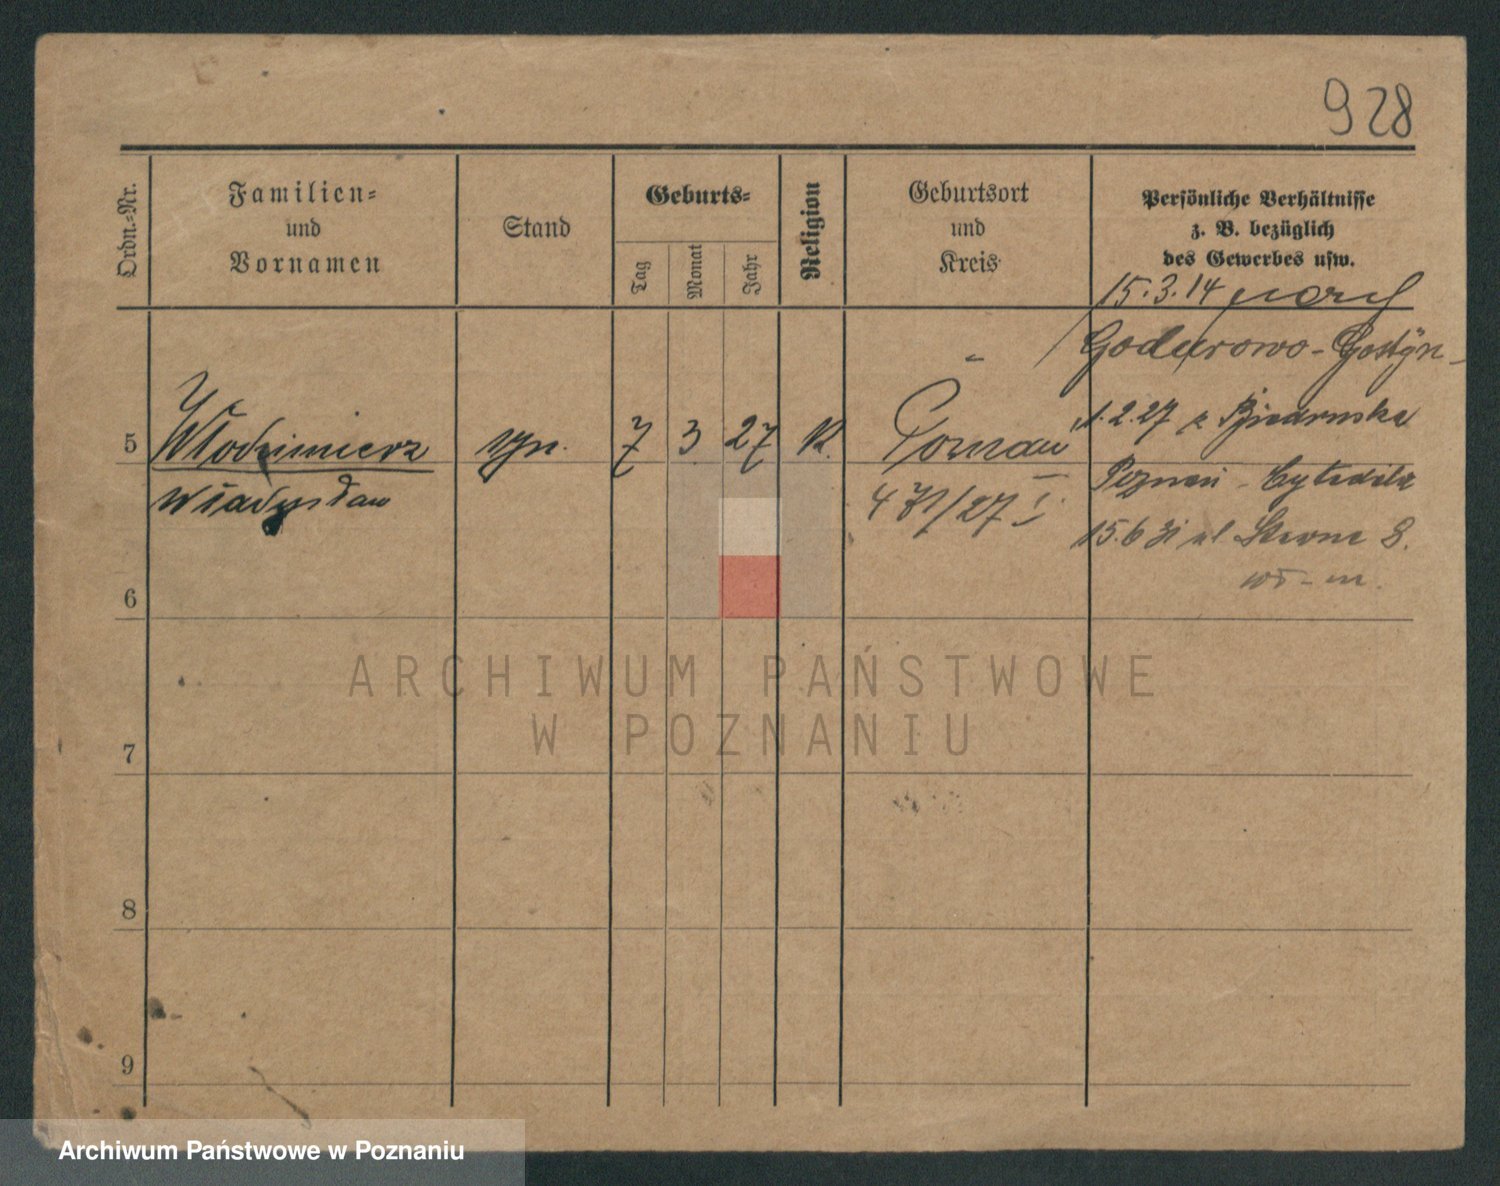 928
Ordn.-Nr.
Familien-
und
Vornamen
Stand
Geburts-
Tag
Monat
Jahr
Religion
Geburtsort
und
Kreis
Persönliche Verhältnisse
z. B. bezüglich
des Gewerbes usw.
15.3.14
Godurowo - Gostyn
5
Włodzimierz
syn.
7
3
27
K.
Poznań
1.2.27 z Biedruska
Władysław
471/27 I.
Poznań - Cytadela
15.6 31 ul
8.
6
7
8
9
ARCHIWUM PAŃSTWOWE
W POZNANIU
Archiwum Państwowe w Poznaniu